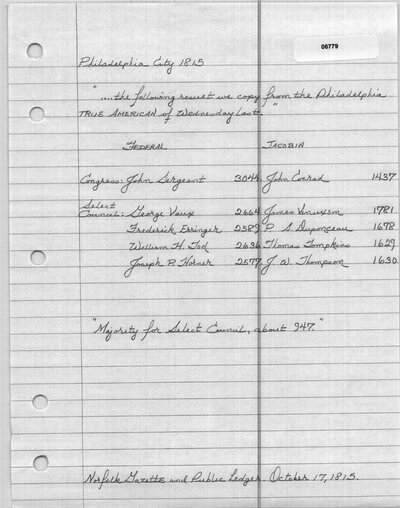 06779
Philadelphia City 1815
"....the following result we copy from the Philadelphia
TRUE AMERICAN of Wednesday last."
FEDERAL JACOBIN
Congress: John Sergeant 3044 John Conrad 1437
Select
Council: George Vaux 2664 James Vanuxem 1781
Frederick Erringer 2589 P. S. Duponceau 1678
William H. Tod 2636 Thomas Tompkins 1629
Joseph P. Horner 2577 J. W. Thompson 1630
"Majority for Select Council, about 947."
Norfolk Gazette and Public Ledger. October 17, 1815.